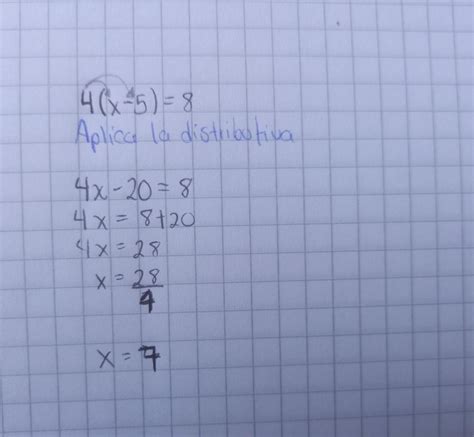 4(x-5)=8
Aplica la distributiva
4x-20=8
4x=8+20
4x=28
x=28/4
x=7